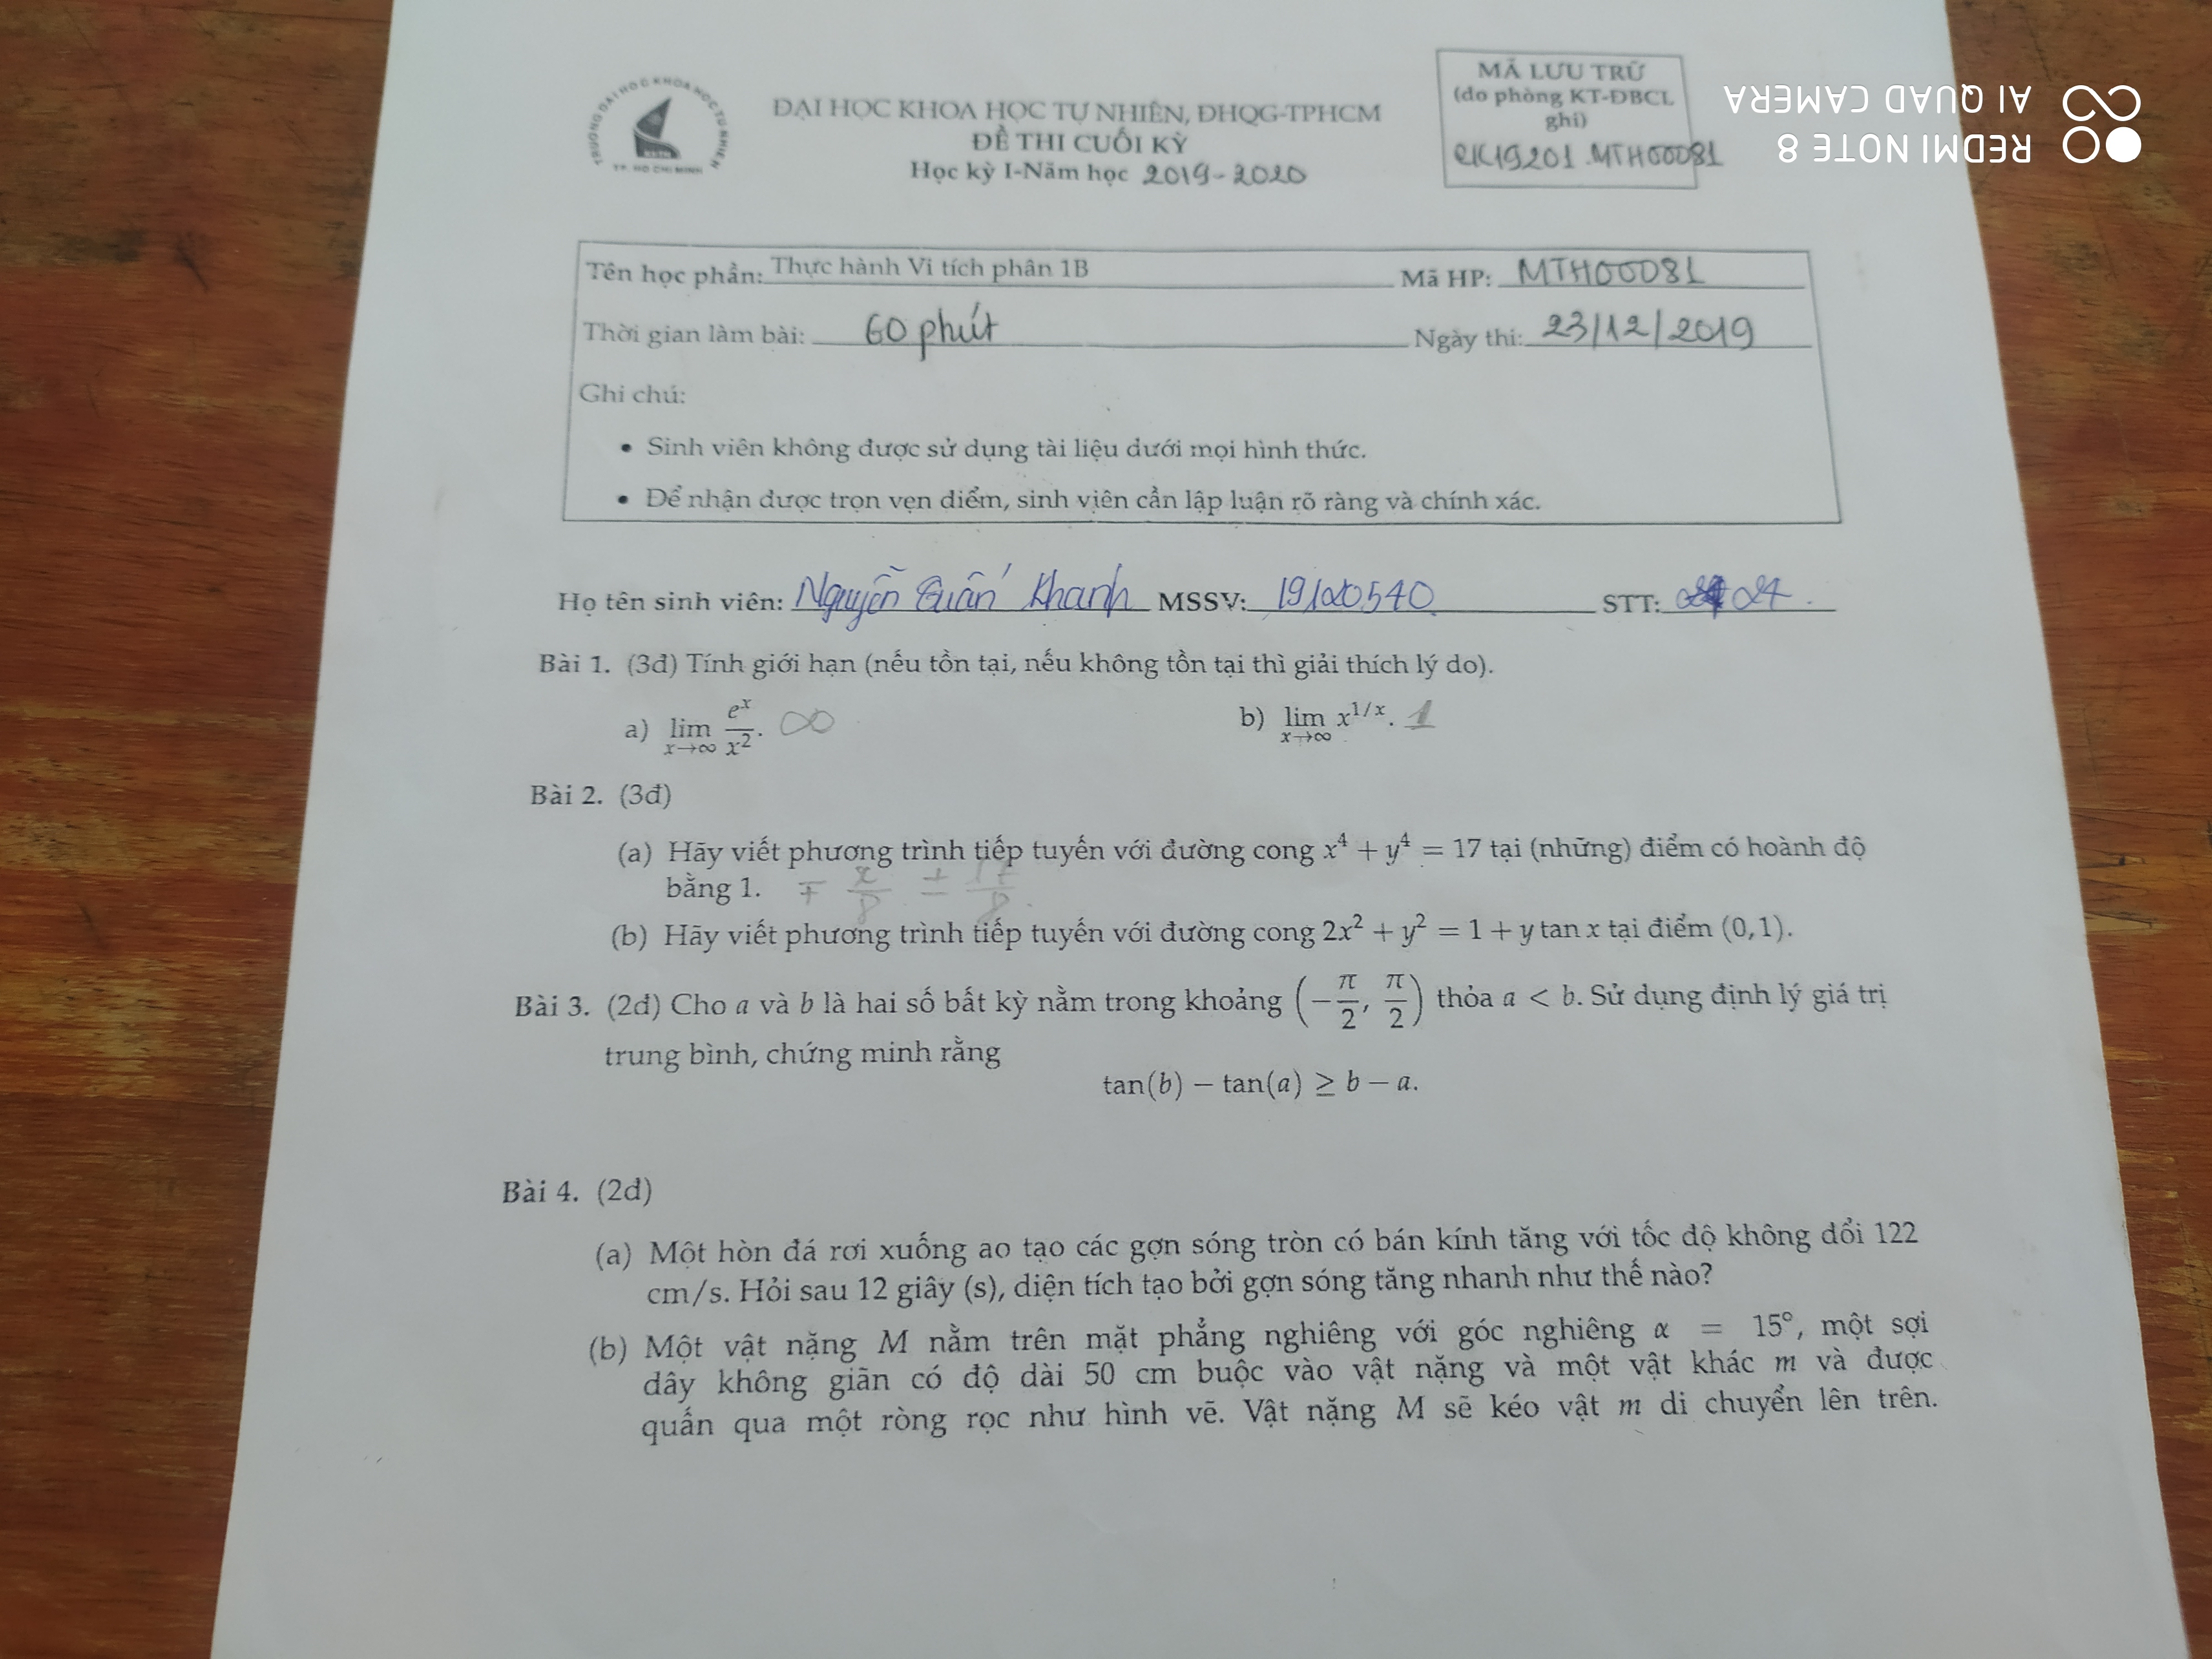 TRƯỜNG ĐẠI HỌC KHOA HỌC TỰ NHIÊN
TP. HỒ CHÍ MINH
ĐẠI HỌC KHOA HỌC TỰ NHIÊN, ĐHQG-TPHCM
ĐỀ THI CUỐI KỲ
Học kỳ I-Năm học 2019-2020
MÃ LƯU TRỮ
(do phòng KT-ĐBCL
ghi)
CK19201.MTH00081
REDMI NOTE 8
AI QUAD CAMERA
Tên học phần: Thực hành Vi tích phân 1B Mã HP: MTH00081
Thời gian làm bài: 60 phút Ngày thi: 23/12/2019
Ghi chú:
• Sinh viên không được sử dụng tài liệu dưới mọi hình thức.
• Để nhận được trọn vẹn điểm, sinh viên cần lập luận rõ ràng và chính xác.
Họ tên sinh viên: Nguyễn Tuấn Khanh MSSV: STT:
Bài 1. (3đ) Tính giới hạn (nếu tồn tại, nếu không tồn tại thì giải thích lý do).
a) lim x→∞ e^x/x^2. ∞ b) lim x→∞ x^{1/x}. 1
Bài 2. (3đ)
(a) Hãy viết phương trình tiếp tuyến với đường cong x^4 + y^4 = 17 tại (những) điểm có hoành độ
bằng 1. ∓ x/8 ± 17/8.
(b) Hãy viết phương trình tiếp tuyến với đường cong 2x^2 + y^2 = 1 + y tan x tại điểm (0, 1).
Bài 3. (2đ) Cho a và b là hai số bất kỳ nằm trong khoảng (−π/2, π/2) thỏa a < b. Sử dụng định lý giá trị
trung bình, chứng minh rằng
tan(b) − tan(a) ≥ b − a.
Bài 4. (2đ)
(a) Một hòn đá rơi xuống ao tạo các gợn sóng tròn có bán kính tăng với tốc độ không đổi 122
cm/s. Hỏi sau 12 giây (s), diện tích tạo bởi gợn sóng tăng nhanh như thế nào?
(b) Một vật nặng M nằm trên mặt phẳng nghiêng với góc nghiêng α = 15°, một sợi
dây không giãn có độ dài 50 cm buộc vào vật nặng và một vật khác m và được
quấn qua một ròng rọc như hình vẽ. Vật nặng M sẽ kéo vật m di chuyển lên trên.